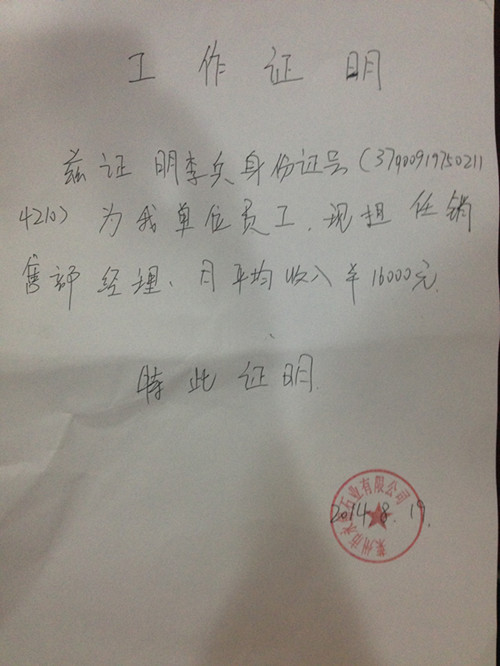 工作证明
兹证明李兵身份证号(37900919750211
4210)为我单位员工.现担任销
售部经理、月平均收入¥16000元
特此证明.
石业有限公司
莱州市
2014.8.19.